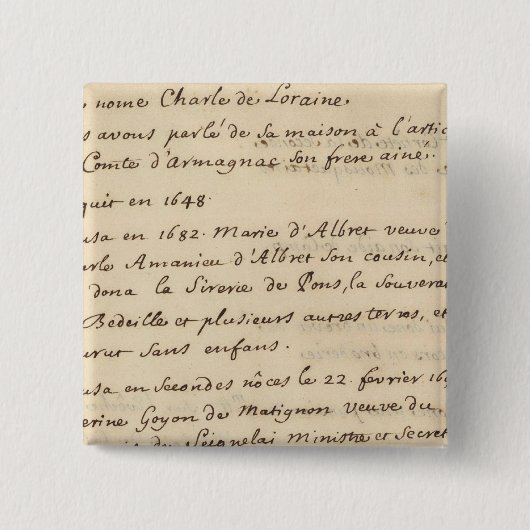 nome Charle de Loraine.
s avons parlé de sa maison à l'artic
Comte d'Armagnac son frere ainé.
quit en 1648.
usa en 1682. Marie d'Albret veuve
arle Amanieu d'Albret son cousin, et
dona la Sirerie de Pons, la souverai
Bedeille et plusieurs autres terres, et
urut sans enfans.
usa en secondes nôces le 22. fevrier 16
erine Goyon de Matignon veuve du
de Seignelai Ministre et Secret